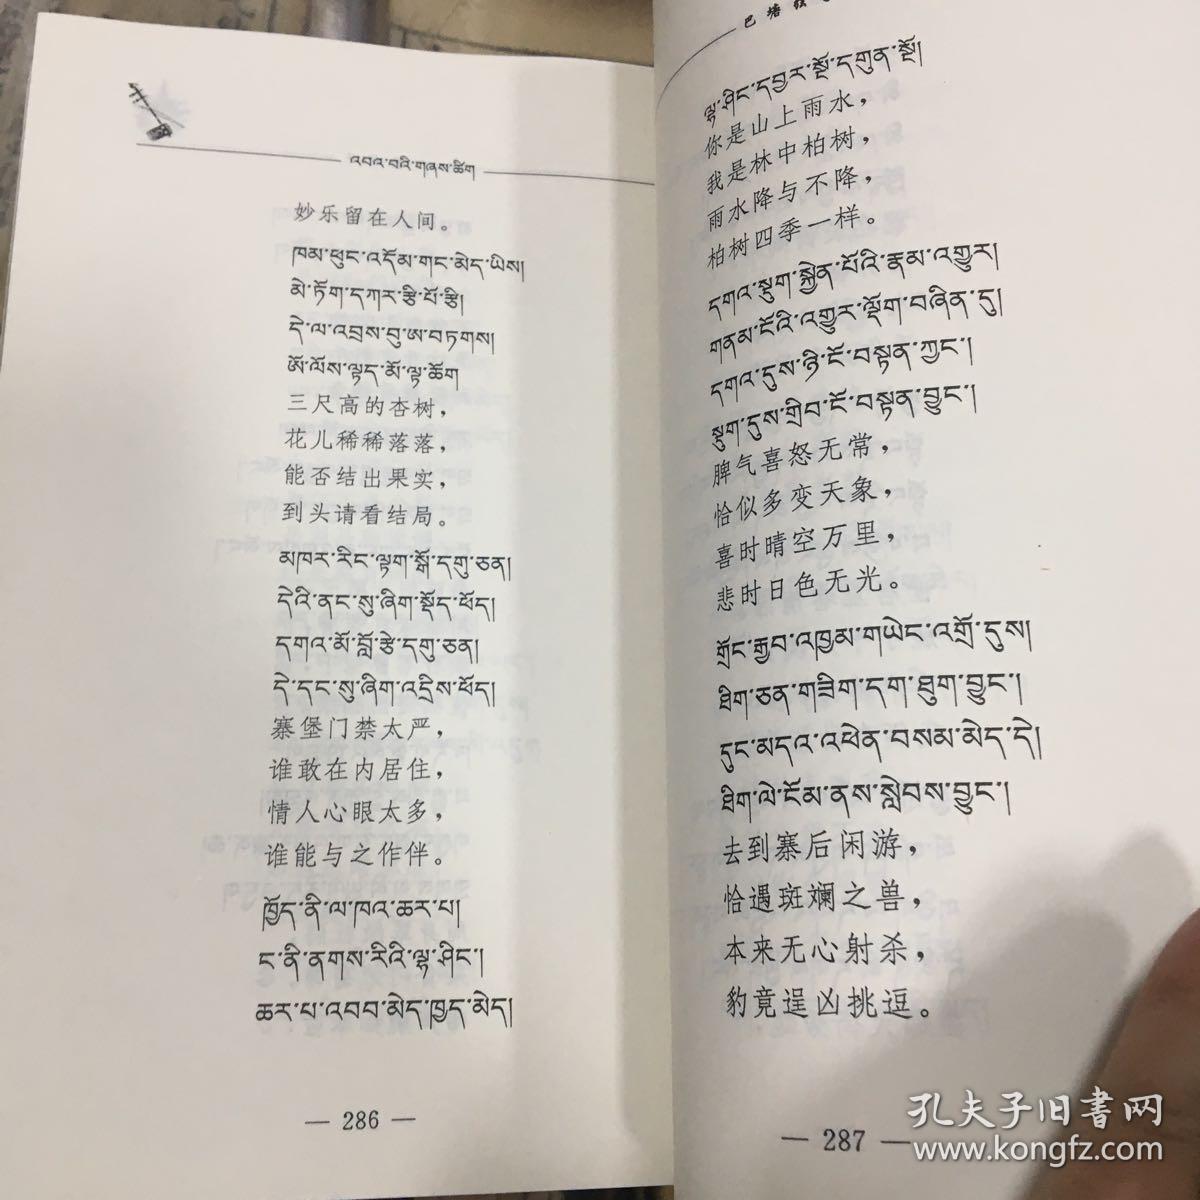 འབའ་བའི་གཞས་ཚིག
妙乐留在人间。
ཁམ་ཕུང་འདོམ་གང་མེད་ཡིས།
མེ་ཏོག་དཀར་རྩི་པོ་རྩི།
དེ་ལ་འབྲས་བུ་ཨ་བཏགས།
ཨོ་ལོས་ལྟད་མོ་ལྟ་ཆོག
三尺高的杏树，
花儿稀稀落落，
能否结出果实，
到头请看结局。
མཁར་རིང་ལྟག་སྒོ་དགུ་ཅན།
དེའི་ནང་སུ་ཞིག་སྡོད་ཕོད།
དགའ་མོ་བློ་རྩེ་དགུ་ཅན།
དེ་དང་སུ་ཞིག་འདྲིས་ཕོད།
寨堡门禁太严，
谁敢在内居住，
情人心眼太多，
谁能与之作伴。
ཁྱོད་ནི་ལ་ཁའ་ཆར་པ།
ང་ནི་ནགས་རིའི་ལྷ་ཤིང་།
ཆར་པ་འབབ་མེད་ཁྱད་མེད།
— 286 —
巴塘弦
ལྷ་ཤིང་དབྱར་སྔོ་དགུན་སྔོ།
你是山上雨水，
我是林中柏树，
雨水降与不降，
柏树四季一样。
དགའ་སྡུག་སྐྱེན་པོའི་རྣམ་འགྱུར།
གནམ་ངོའི་འགྱུར་ལྡོག་བཞིན་དུ།
དགའ་དུས་ཉི་ངོ་བསྟན་ཀྱང་།
སྡུག་དུས་གྲིབ་ངོ་བསྟན་བྱུང་།
脾气喜怒无常，
恰似多变天象，
喜时晴空万里，
悲时日色无光。
གྲོང་རྒྱབ་འཁྱམ་གཡེང་འགྲོ་དུས།
ཐིག་ཅན་གཟིག་དག་ཐུག་བྱུང་།
དུང་མདའ་འཕེན་བསམ་མེད་དེ།
ཐིག་ལེ་ངོམ་ནས་སླེབས་བྱུང་།
去到寨后闲游，
恰遇斑斓之兽，
本来无心射杀，
豹竟逞凶挑逗。
— 287 —
孔夫子旧书网
www.kongfz.com